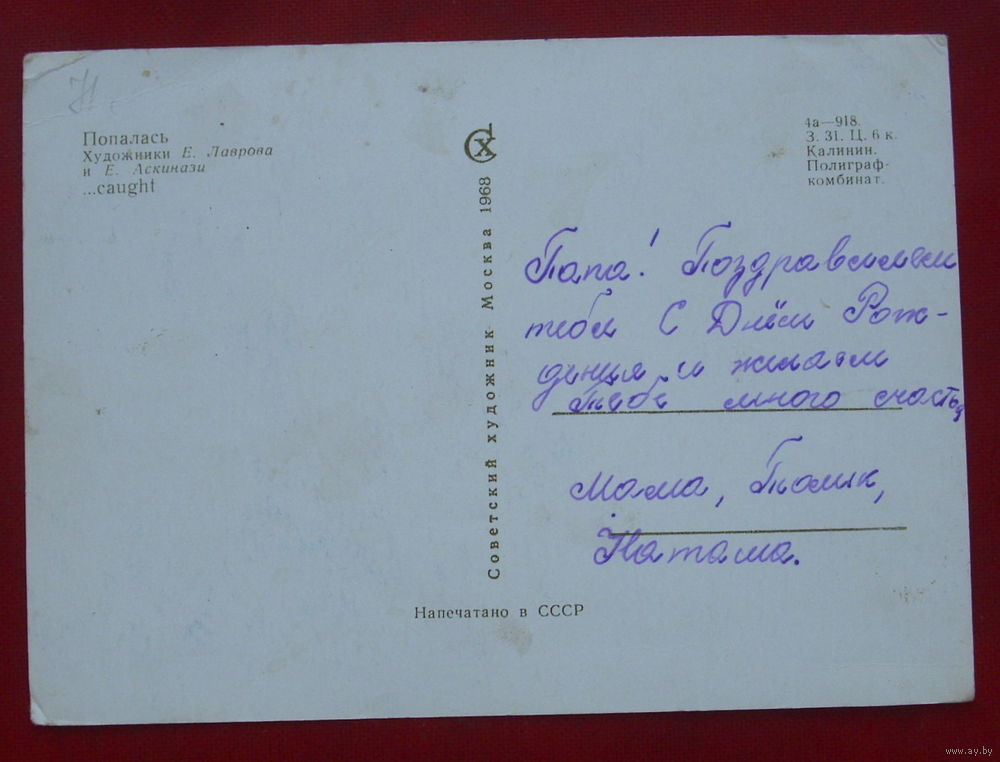 Попалась
Художники Е. Лаврова
и Е. Аскинази
...caught
Советский художник Москва 1968
4а—918.
З. 31. Ц. 6 к.
Калинин.
Полиграф-
комбинат.
Папа! Поздравляем
тебя С Днём Рож-
дения и желаем
Тебе много счастья
Мама, Толик,
Наташа.
Напечатано в СССР
www.ay.by